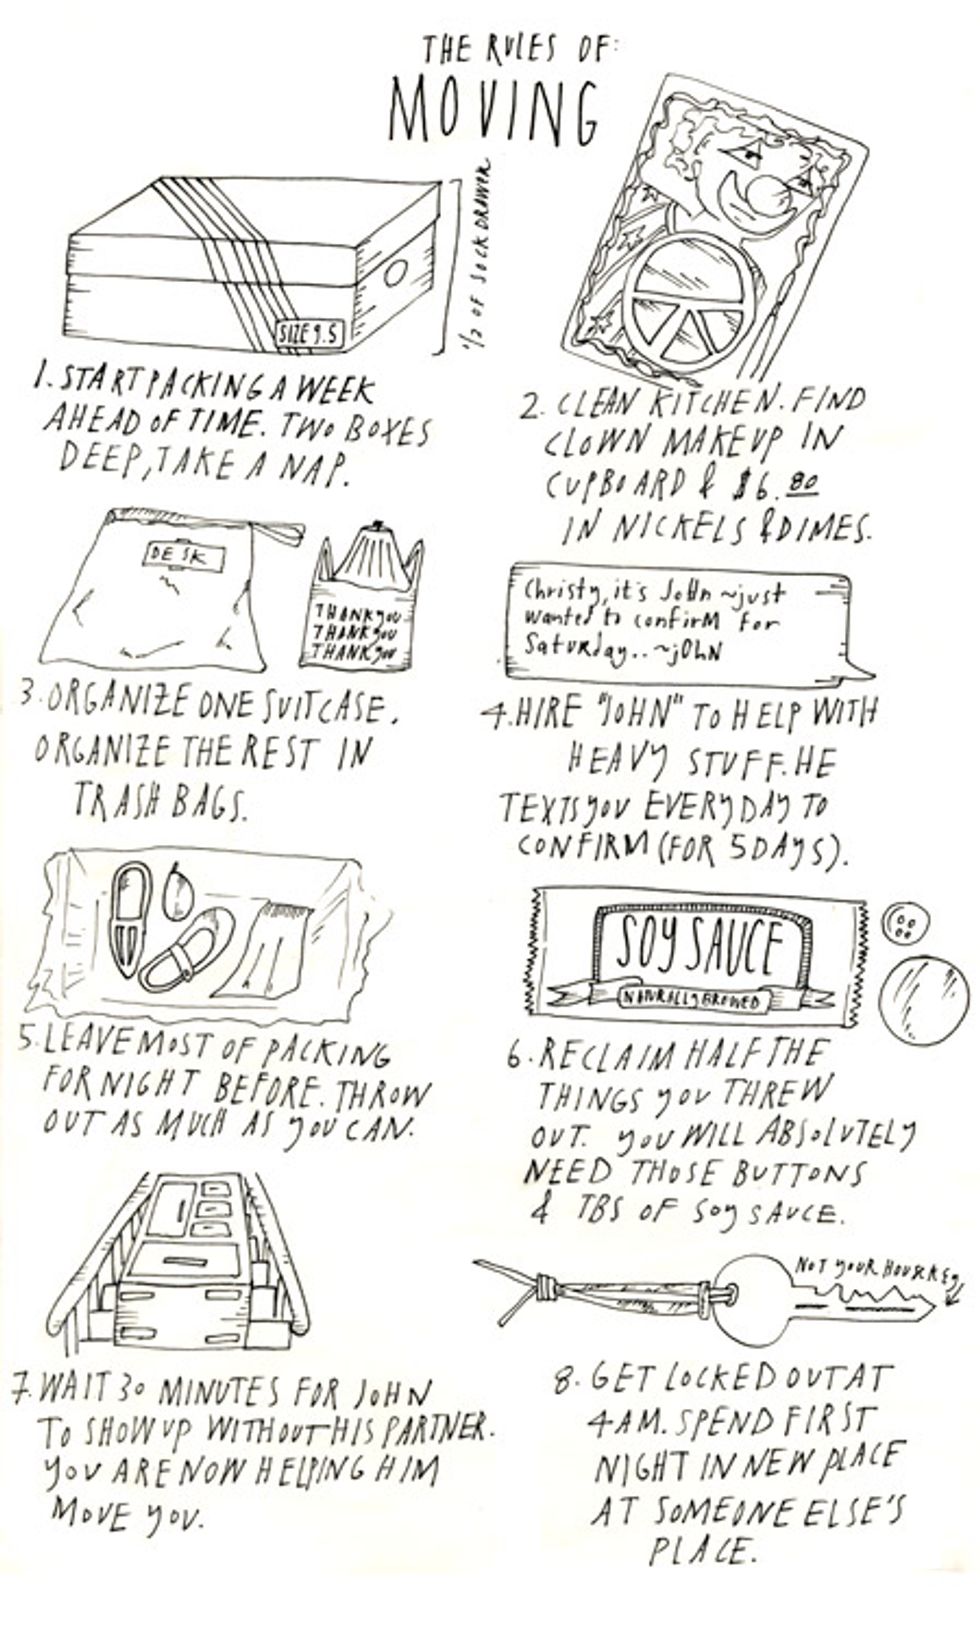 THE RULES OF:
MOVING
1/2 OF SOCK DRAWER
SIZE 9.5
1. START PACKING A WEEK
AHEAD OF TIME. TWO BOXES
DEEP, TAKE A NAP.
2. CLEAN KITCHEN. FIND
CLOWN MAKEUP IN
CUPBOARD & $6.80
IN NICKELS & DIMES.
DESK
THANK YOU
THANK YOU
THANK YOU
3. ORGANIZE ONE SUITCASE.
ORGANIZE THE REST IN
TRASH BAGS.
Christy, it's John ~just
wanted to confirm for
Saturday.. ~jOhN
4. HIRE "JOHN" TO HELP WITH
HEAVY STUFF. HE
TEXTS YOU EVERYDAY TO
CONFIRM (FOR 5 DAYS).
5. LEAVE MOST OF PACKING
FOR NIGHT BEFORE. THROW
OUT AS MUCH AS YOU CAN.
SOY SAUCE
NATURALLY BREWED
6. RECLAIM HALF THE
THINGS YOU THREW
OUT. YOU WILL ABSOLUTELY
NEED THOSE BUTTONS
& TBS OF SOY SAUCE.
7. WAIT 30 MINUTES FOR JOHN
TO SHOW UP WITHOUT HIS PARTNER.
YOU ARE NOW HELPING HIM
MOVE YOU.
NOT YOUR HOUSE KEY
8. GET LOCKED OUT AT
4AM. SPEND FIRST
NIGHT IN NEW PLACE
AT SOMEONE ELSE'S
PLACE.